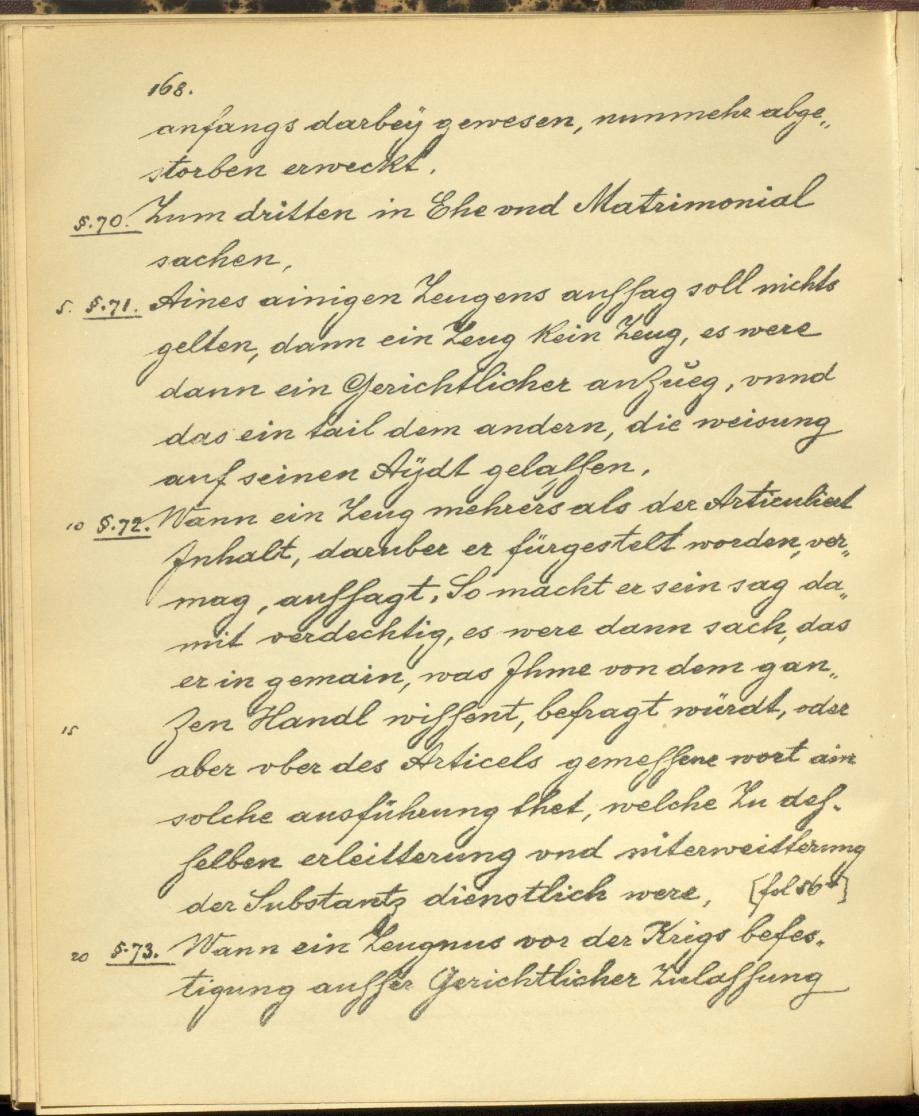 168.
anfangs darbeÿ gewesen, nunmehr abge„
storben erweckt.
§.70. Zum dritten in Ehe vnd Matrimonial
sachen,
5. §.71. Aines ainigen Zeugens aussag soll nichts
gelten, dann ein Zeug kein Zeug, es were
dann ein Gerichtlicher anzŭeg, vnnd
das ein tail dem andern, die weisung
auf seinen Aÿdt gelassen.
10 §.72. Wann ein Zeug mehrers als der Articuliert
Inhalt, daruber er fürgestelt worden, ver„
mag, aussagt, So macht er sein sag da„
mit verdechtig, es were dann sach, das
er in gemain, was Ihme von dem gan„
15 zen Handl wissent, befragt würdt, oder
aber vber des Articels gemessene wort ain
solche ausführung thet, welche Zu des-
selben erleitterung vnd niterweitterung
der Substantz dienstlich were, [fol 56
20 §.73. Wann ein Zeugnus vor der Krigs befes„
tigung ausser Gerichtlicher Zulassung